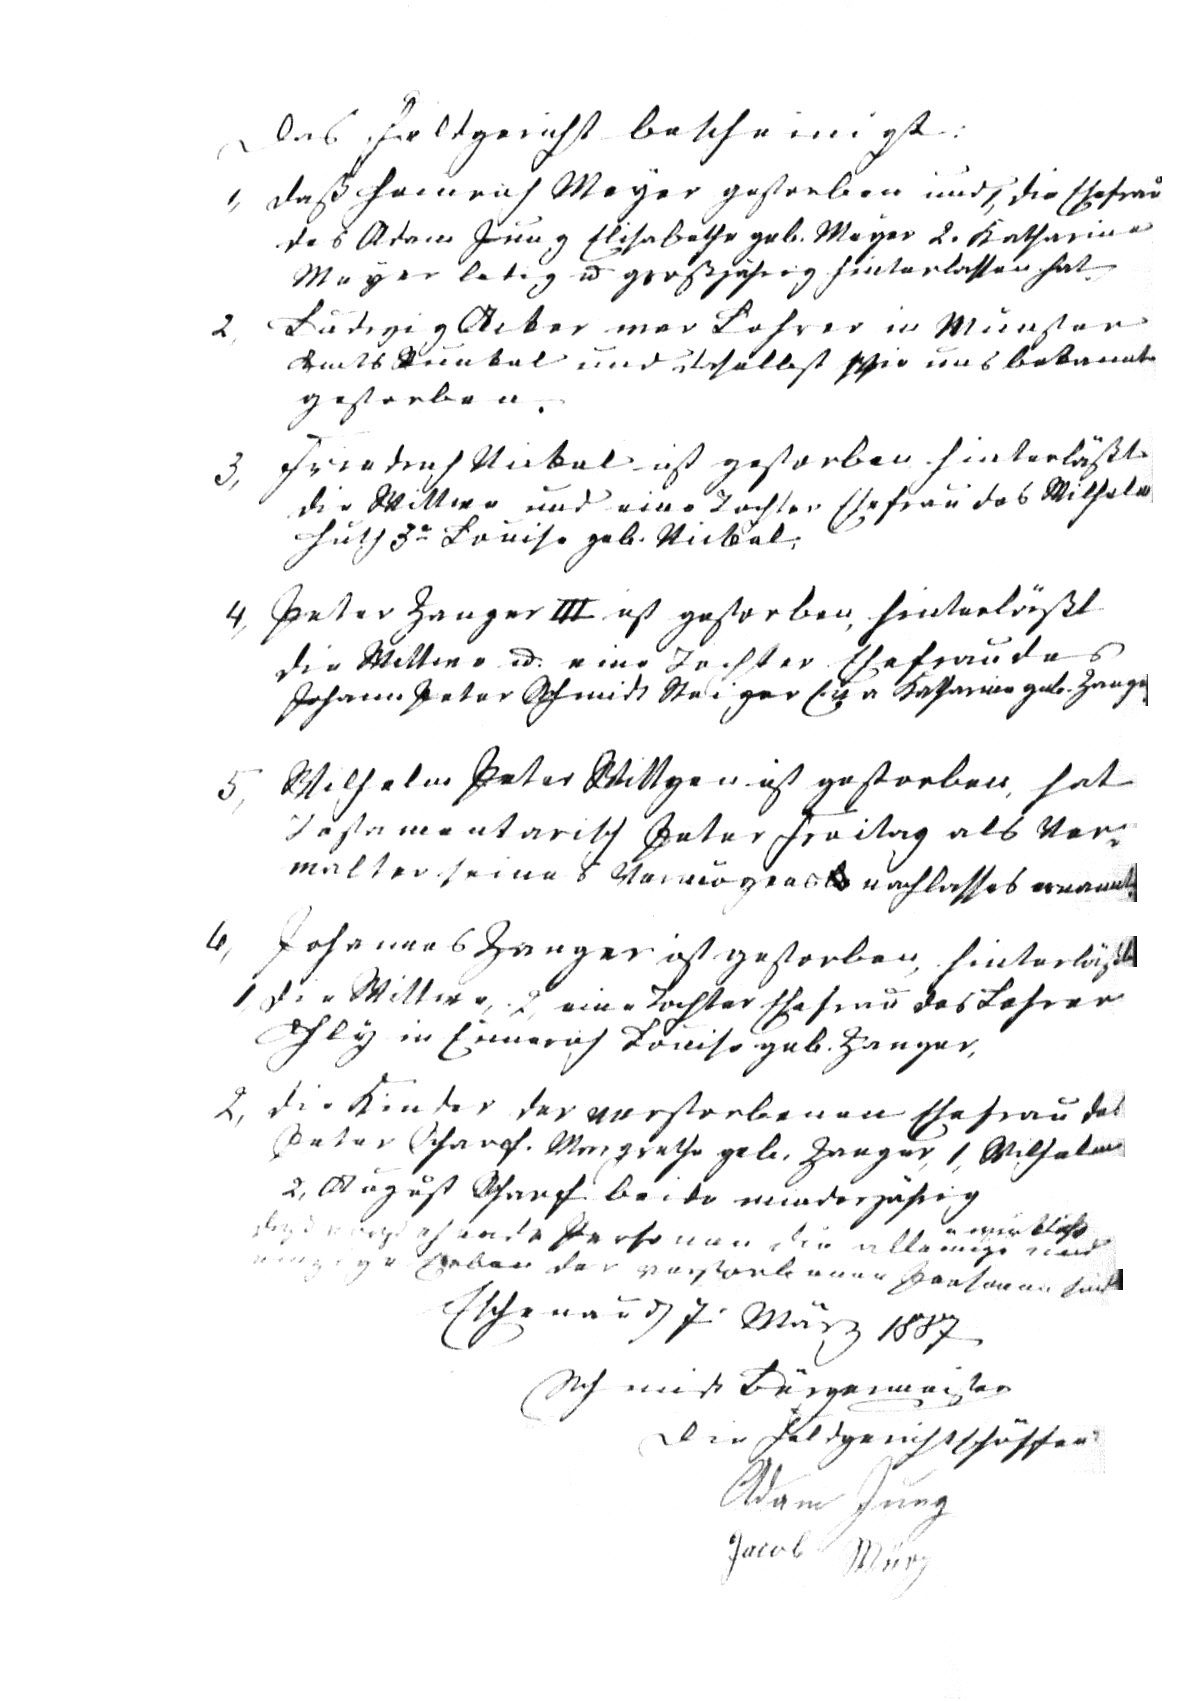 Das Feldgericht bescheinigt:
1, daß Heinrich Meyer gestorben und 1, die Ehefrau
des Adam Jung Elisabethe geb. Meyer 2. Katharine
Meyer ledig u großjährig hinterlassen hat
2, Ludwig Acker war Lehrer in Münster
Amts Runkel und daselbst wie uns bekannt
gestorben.
3, Friedrich Nickel ist gestorben hinterläßt
die Wittwe und eine Tochter Ehefrau des Wilhelm
Huth 3r Louise geb. Nickel.
4, Peter Zanger III ist gestorben, hinterläßt
die Wittwe u. eine Tochter Ehefrau des
Johann Peter Schmidt Steiger Katharine geb. Zanger
5, Wilhelm Peter Wittgen ist gestorben, hat
Testamentarisch Peter Freitag als Ver-
walter seines Vermögens nachlasses ernannt.
6, Johannes Zanger ist gestorben, hinterläßt
1, die Wittwe, 2, eine Tochter Ehefrau des Lehrer
Ohly in Ennerich Louise geb. Zanger,
2, die Kinder der verstorbenen Ehefrau des
Peter Scharf. Margrethe geb. Zanger, 1, Wilhelm
2, August Scharf beide minderjährig
daß vorstehende Personen die alleinige und wirklich
einzige Erben der verstorbenen Personen sind
Eschenau d 7. März 1887
Schmidt Bürgermeister
Die Feldgerichtschöffen
Adam Jung
Jacob März